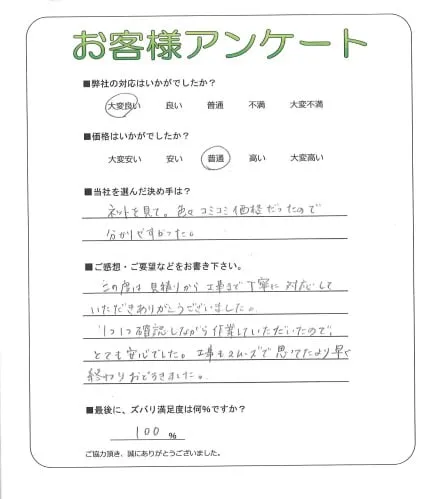 お客様アンケート
■弊社の対応はいかがでしたか？
大変良い 良い 普通 不満 大変不満
■価格はいかがでしたか？
大変安い 安い 普通 高い 大変高い
■当社を選んだ決め手は？
ネットを見て。色々コミコミ価格だったので
分かりやすかった。
■ご感想・ご要望などをお書き下さい。
この度は見積りから工事まで丁寧に対応して
いただきありがとうございました。
1つ1つ確認しながら作業していただいたので、
とても安心でした。工事もスムーズで思ってたより早く
終わりおどろきました。
■最後に、ズバリ満足度は何％ですか？
100 ％
ご協力頂き、誠にありがとうございました。